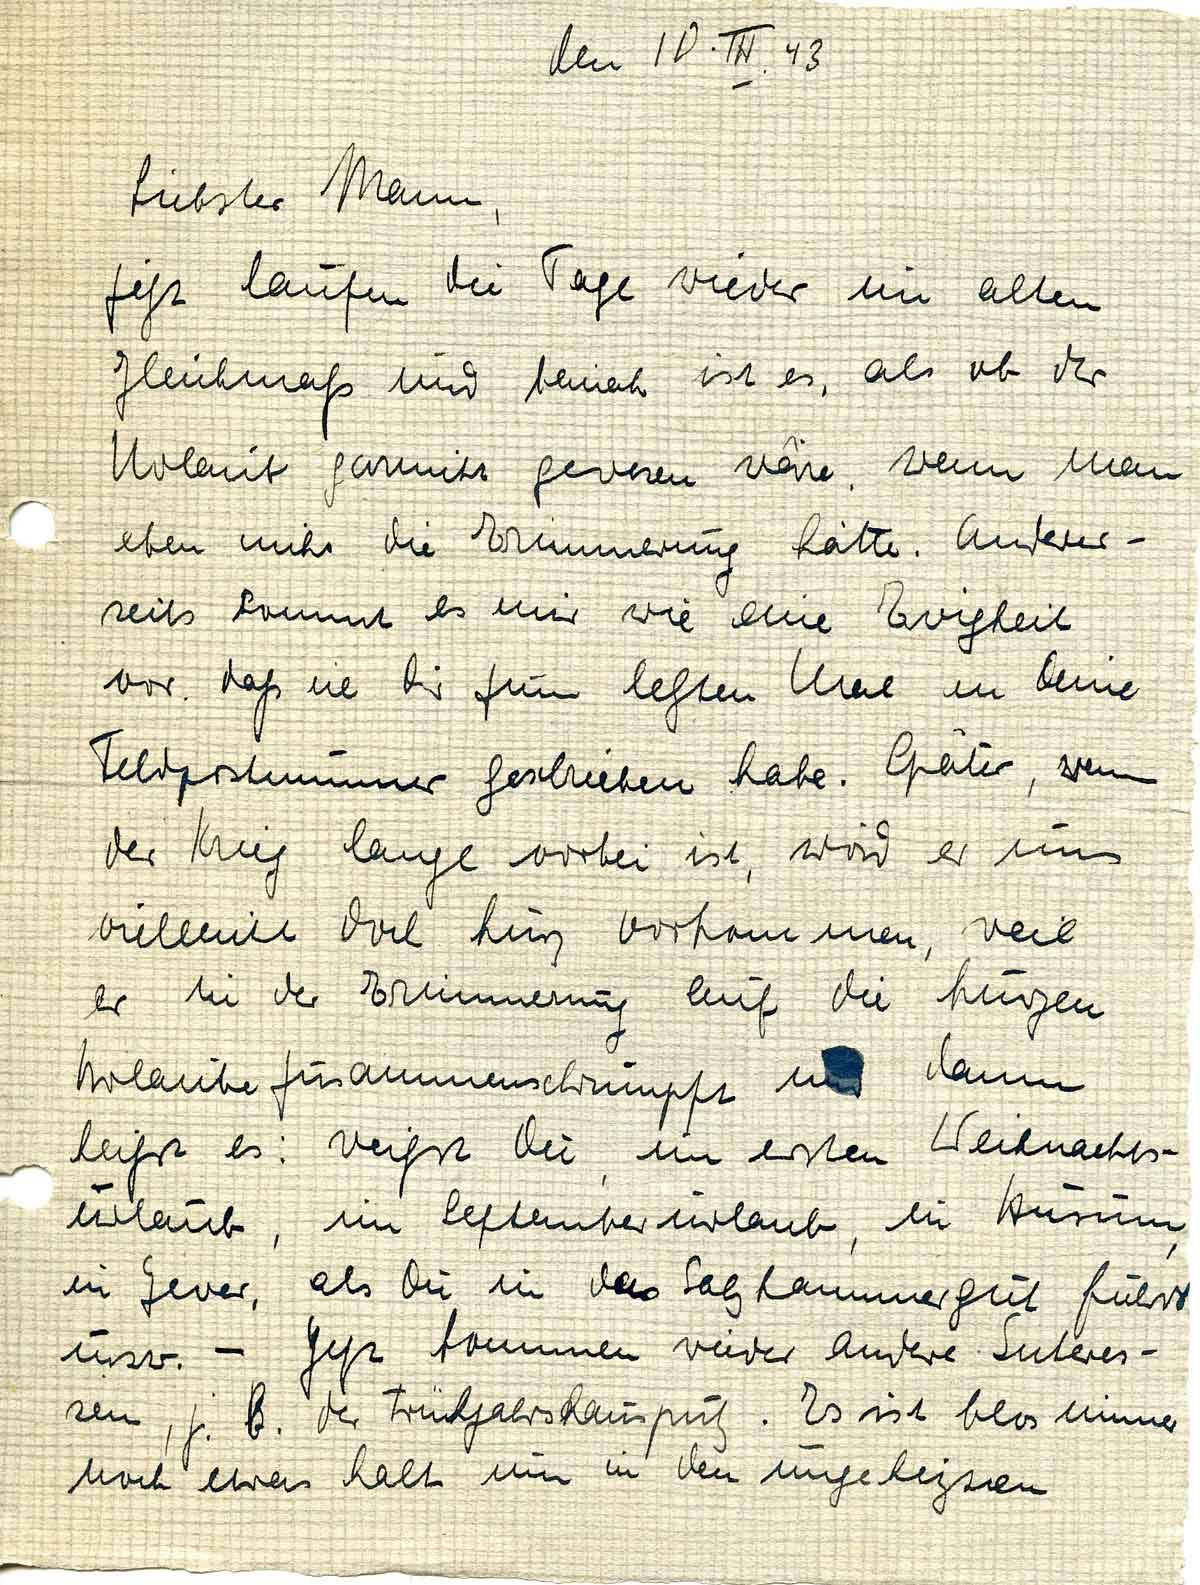 den 10. III. 43
Liebster Mann,
jetzt laufen die Tage wieder im alten
Gleichmaß und beinah ist es, als ob der
Urlaub garnicht gewesen wäre, wenn man
eben nicht die Erinnerung hätte. Anderer-
seits kommt es mir wie eine Ewigkeit
vor, daß ich Dir zum letzten Mal in Deine
Feldpostnummer geschrieben habe. Später, wenn
der Krieg lange vorbei ist, wird er uns
vielleicht doch kurz vorkommen, weil
er in der Erinnerung auf die kurzen
Urlaube zusammenschrumpft und dann
heißt es: weißt Du, im ersten Weihnachts-
urlaub, im Septemberurlaub, in Husum,
in Jever, als Du in das Salzkammergut fuhrst
usw. – Jetzt kommen wieder andere Interes-
sen, z. B. der Frühjahrshausputz. Es ist blos immer
noch etwas kalt um in den ungeheizten